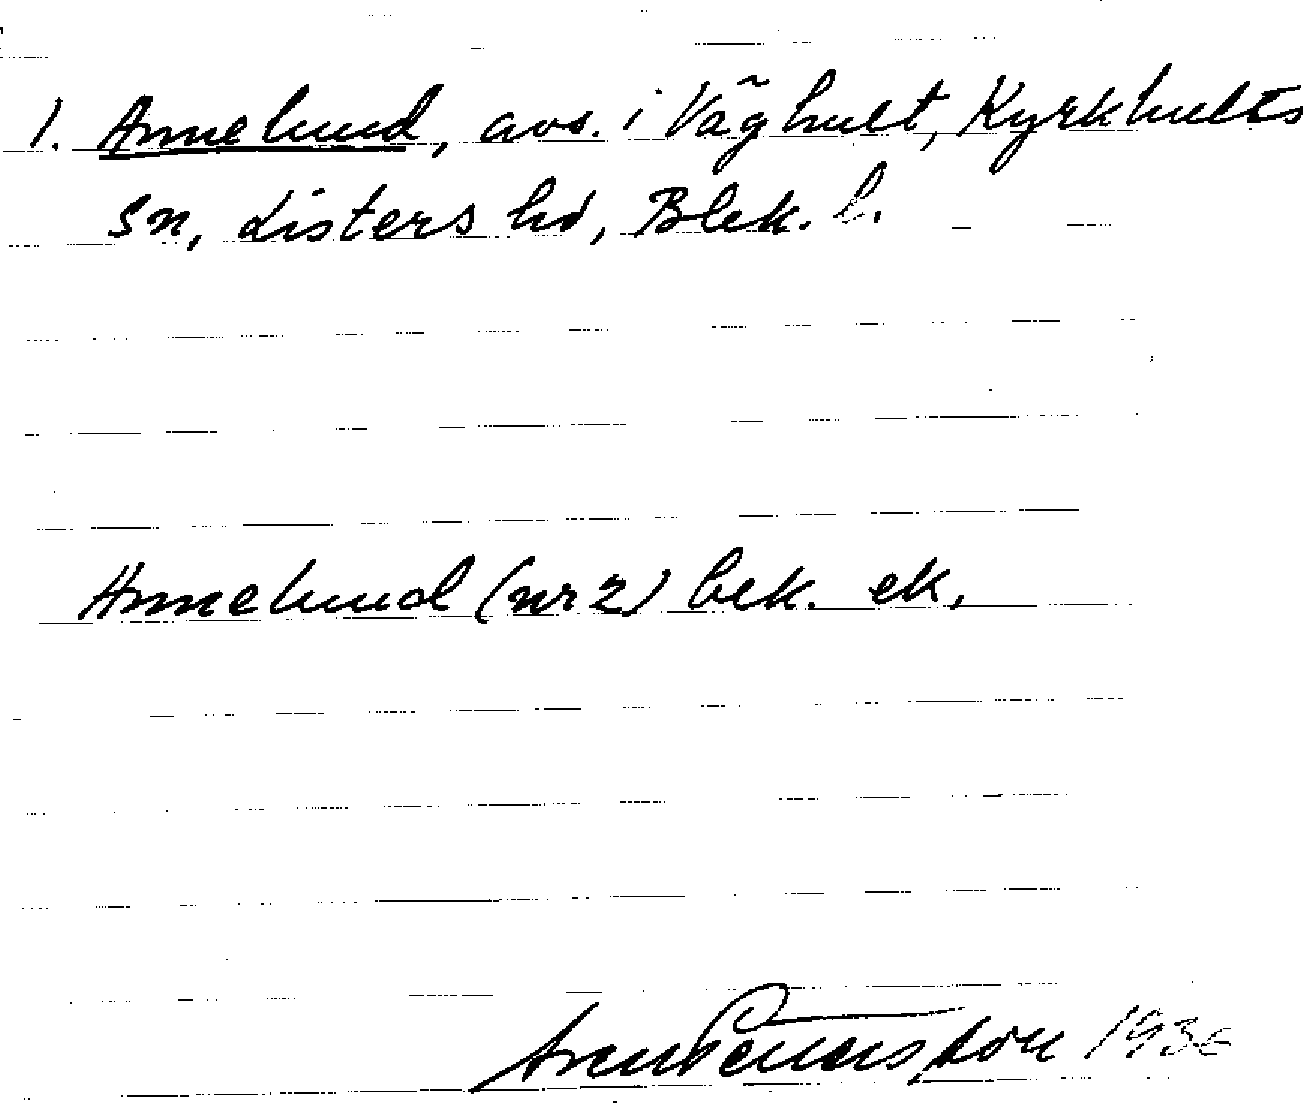 1. Annelund, avs. i Våghult, Kyrkhults
sn, Listers hd, Blek. l.
Annelund (nr 2) bek. ek.
Pettersson 1936